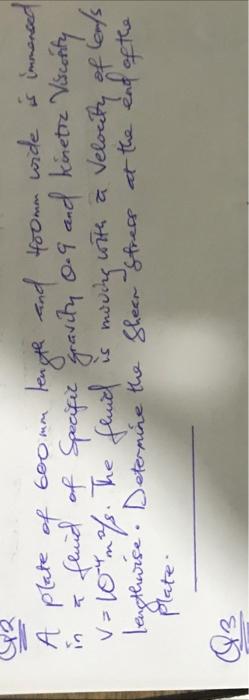 Q2
A plate of 600mm length and 400mm wide is immersed
in a fluid of Specific gravity 0.9 and kinetic Viscosity
V = 10⁻⁴ m²/s. The fluid is moving with a velocity of 6m/s
lengthwise. Determine the Shear Stress at the end of the
Plate.
Q3